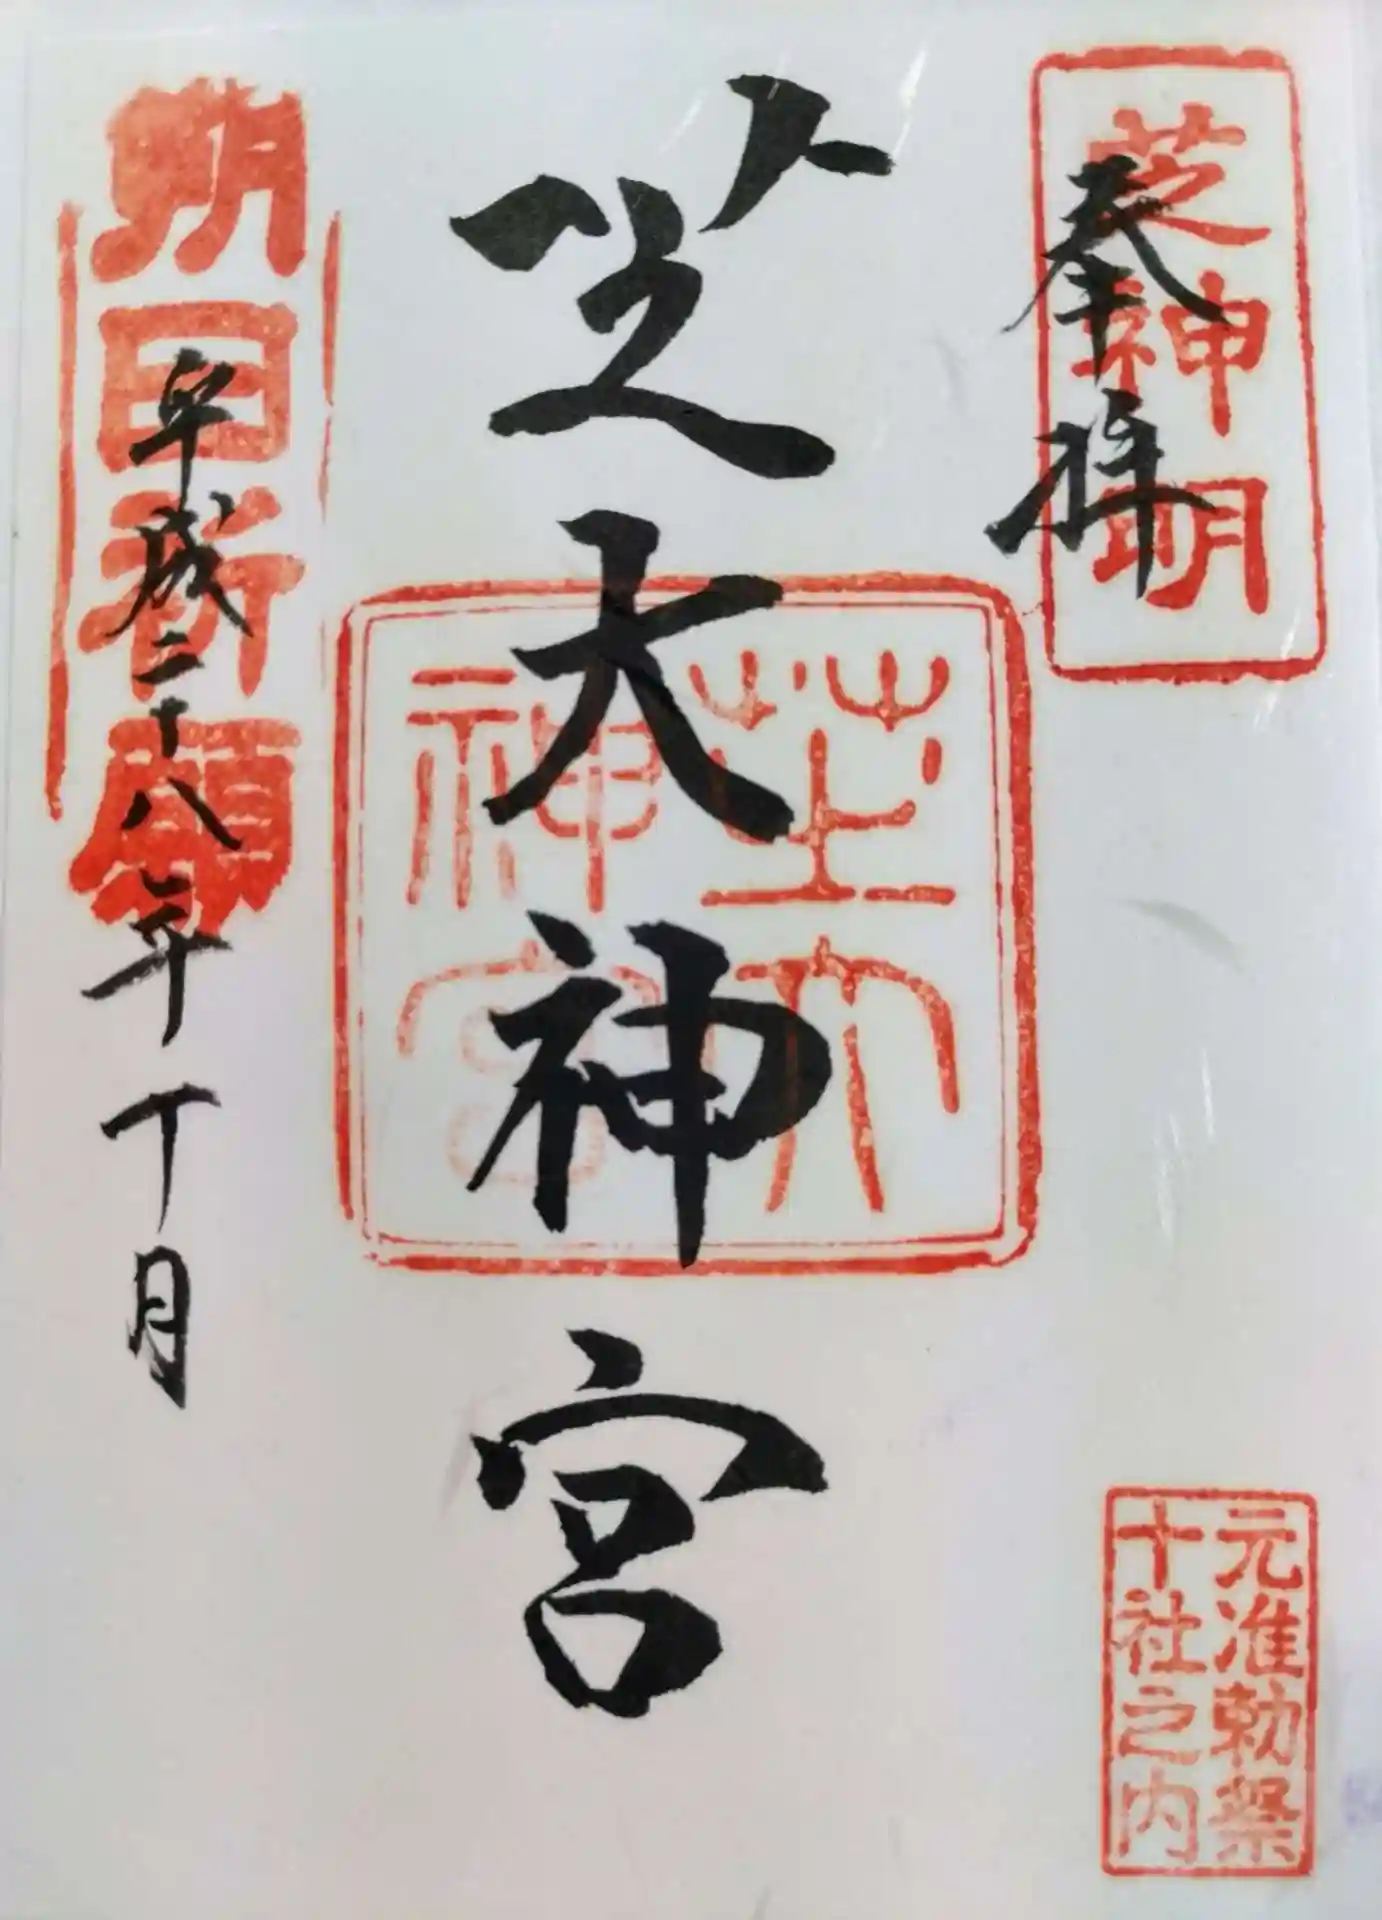 芝神明
奉拝
元准勅祭
十社之内
芝大神宮
芝大
神宮
朔日祈願
平成二十八年十月